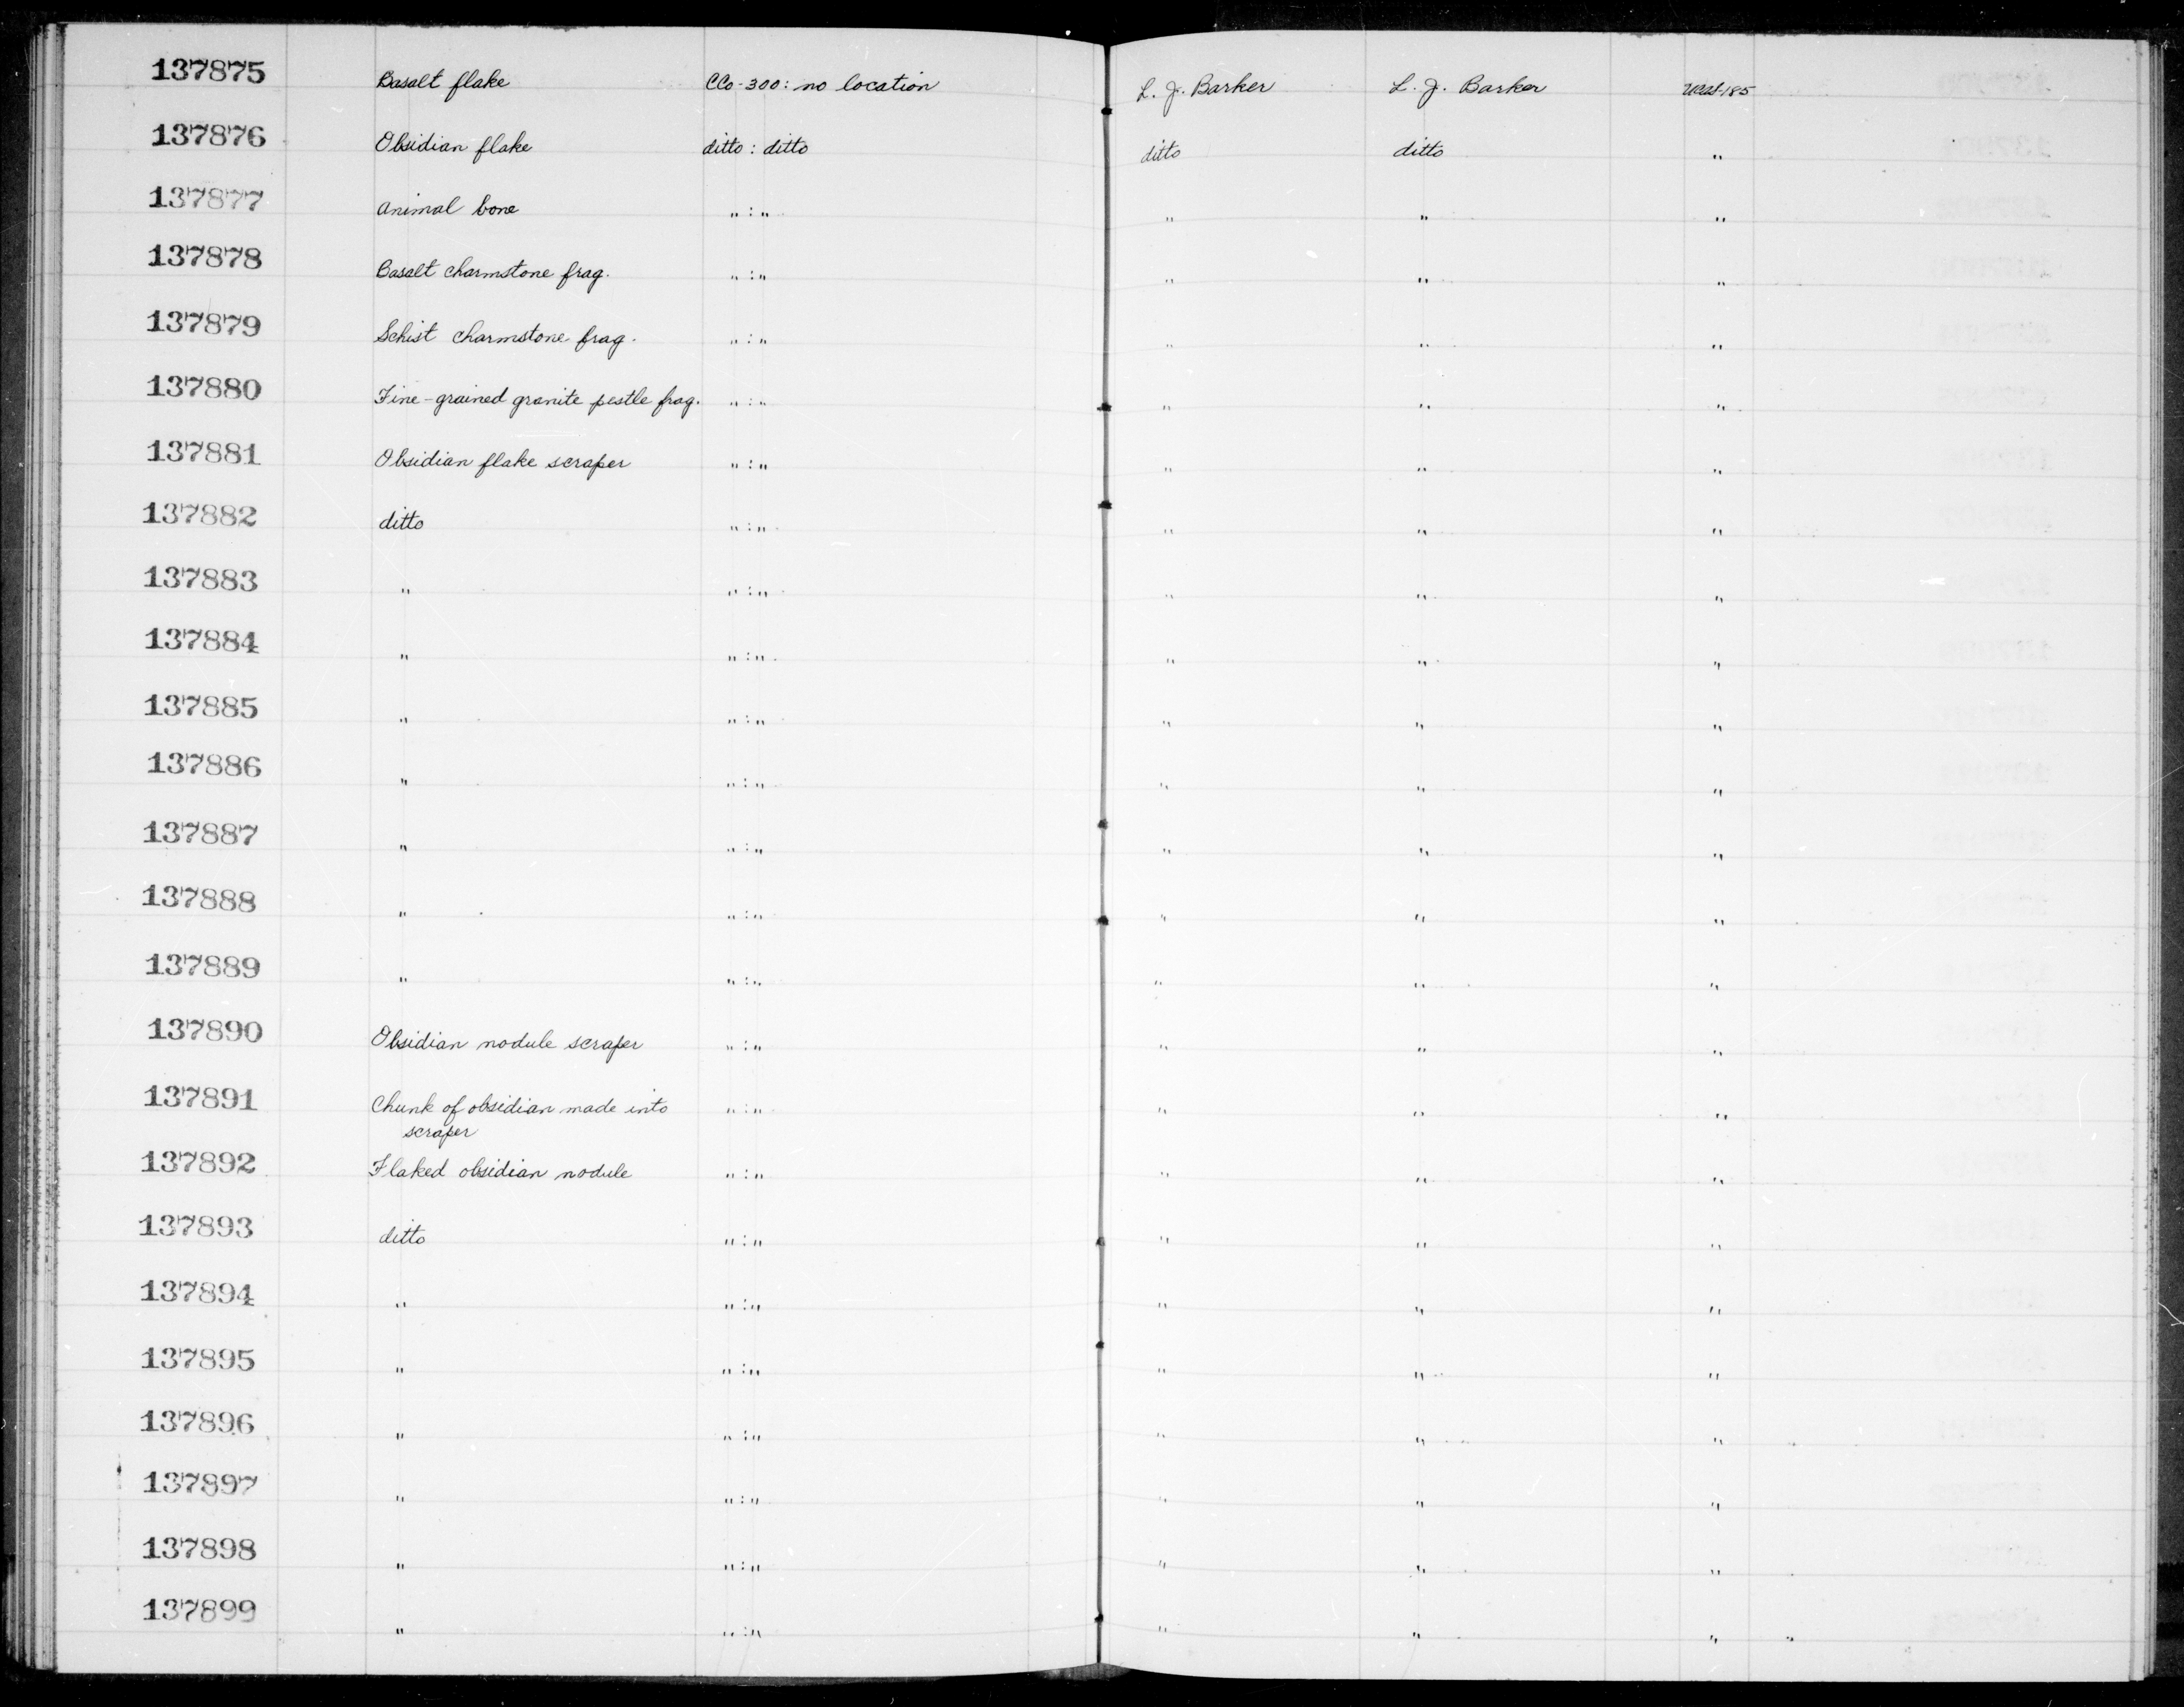 137875 Basalt flake CCo-300: no location L. J. Barker L. J. Barker UCAS-185
137876 Obsidian flake ditto : ditto ditto ditto "
137877 Animal bone " : " " " "
137878 Basalt charmstone frag. " : " " " "
137879 Schist charmstone frag. " : " " " "
137880 Fine-grained granite pestle frag. " : " " " "
137881 Obsidian flake scraper " : " " " "
137882 ditto " : " " " "
137883 " " : " " " "
137884 " " : " " " "
137885 " " : " " " "
137886 " " : " " " "
137887 " " : " " " "
137888 " " : " " " "
137889 " " : " " " "
137890 Obsidian nodule scraper " : " " " "
137891 Chunk of obsidian made into " : " " " "
scraper
137892 Flaked obsidian nodule " : " " " "
137893 ditto " : " " " "
137894 " " : " " " "
137895 " " : " " " "
137896 " " : " " " "
137897 " " : " " " "
137898 " " : " " " "
137899 " " : " " " "